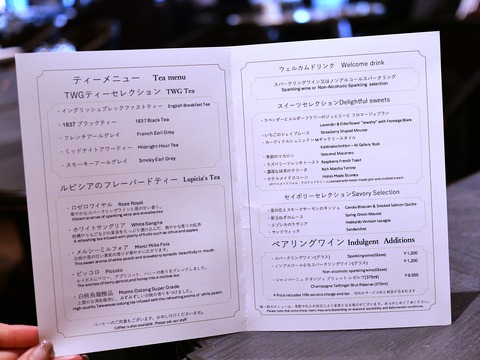 ティーメニュー Tea menu
TWGティーセレクション TWG Tea
・イングリッシュブレックファストティー English Breakfast Tea
・1837 ブラックティー 1837 Black Tea
・フレンチアールグレイ French Earl Grey
・ミッドナイトアワーティー Midnight Hour Tea
・スモーキーアールグレイ Smoky Earl Grey
ルピシアのフレーバードティー Lupicia's Tea
・ロゼロワイヤル Rose Royal
華やかなスパークリングワインと苺の甘い香り。
Vibrant aromas of sparkling wine and strawberries
・ホワイトサングリア White Sangria
A refreshing tea infused with plenty of fruits such as citrus and apples.
・メルシーミルフォア Merci Milla Fois
This sweet aroma of white peach and strawberry spreads beautifully in mouth
・ピッコロ Piccolo
The aromas of berry, apricot, and honey into a rooibos tea
・白桃烏龍極品 Momo Oolong Super Grade
High-quality Taiwanese oolong tea infused with the refreshing aroma of white peach.
コーヒーのご用意もございます。お申し付けくださいませ。
Coffee is also available. Please ask our staff.
ウェルカムドリンク Welcome drink
スパークリングワイン又はノンアルコールスパークリング
Sparkling wine or Non-Alcoholic Sparkling selection
スイーツセレクション Delightful sweets
・ラベンダーとエルダーフラワーのジュエリーと フロマージュブラン
Lavender & Elderflower "Jewelry" with Fromage Blanc
・いちごのシェイプムース Strawberry Shaped Mousse
・季節のマカロン Seasonal Macarons
・ラズベリーフレンチトースト Raspberry French Toast
・濃厚な抹茶のテリーヌ Rich Matcha Terrine
・ホテルメイドスコーン Hotel-Made Scones
セイボリーセレクション Savory Selection
・菜の花とスモークサーモンのキッシュ Canola Blossom & Smoked Salmon Quiche
・新玉ねぎのムース Spring Onion Mousse
・エゾシカのラザニア Hokkaido Venison Lasagna
・サンドウィッチ Sandwiches
ペアリングワイン Indulgent Additions
・スパークリングワイン(グラス) Sparkling wine(Glass) ¥1,200
・ノンアルコールスパークリングワイン(グラス) ¥1,200
Non-alcoholic sparkling wine(Glass)
・シャンパーニュ テタンジェ ブリュット レゼルヴ(375ml) ¥9,500
Champagne Taittinger Brut Réserve (375ml)